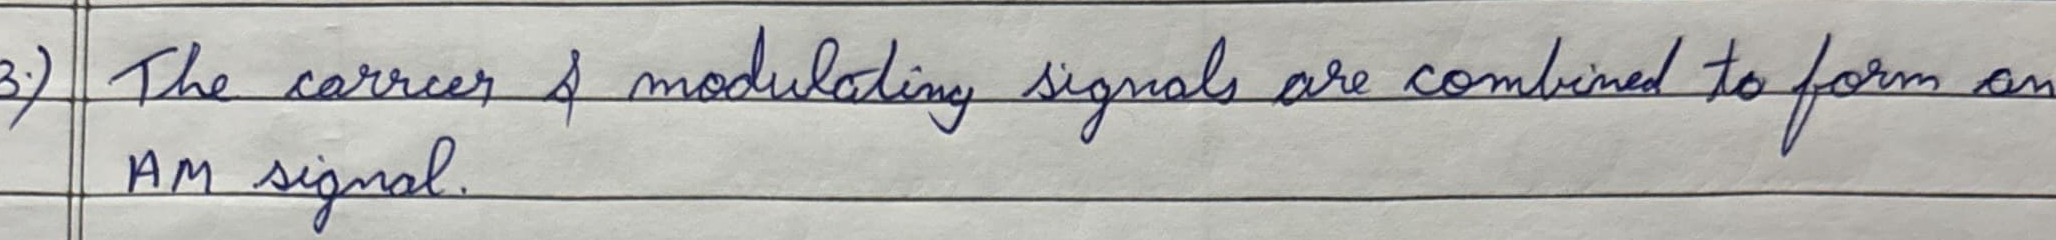 3.) The carrier & modulating signals are combined to form an
AM signal.